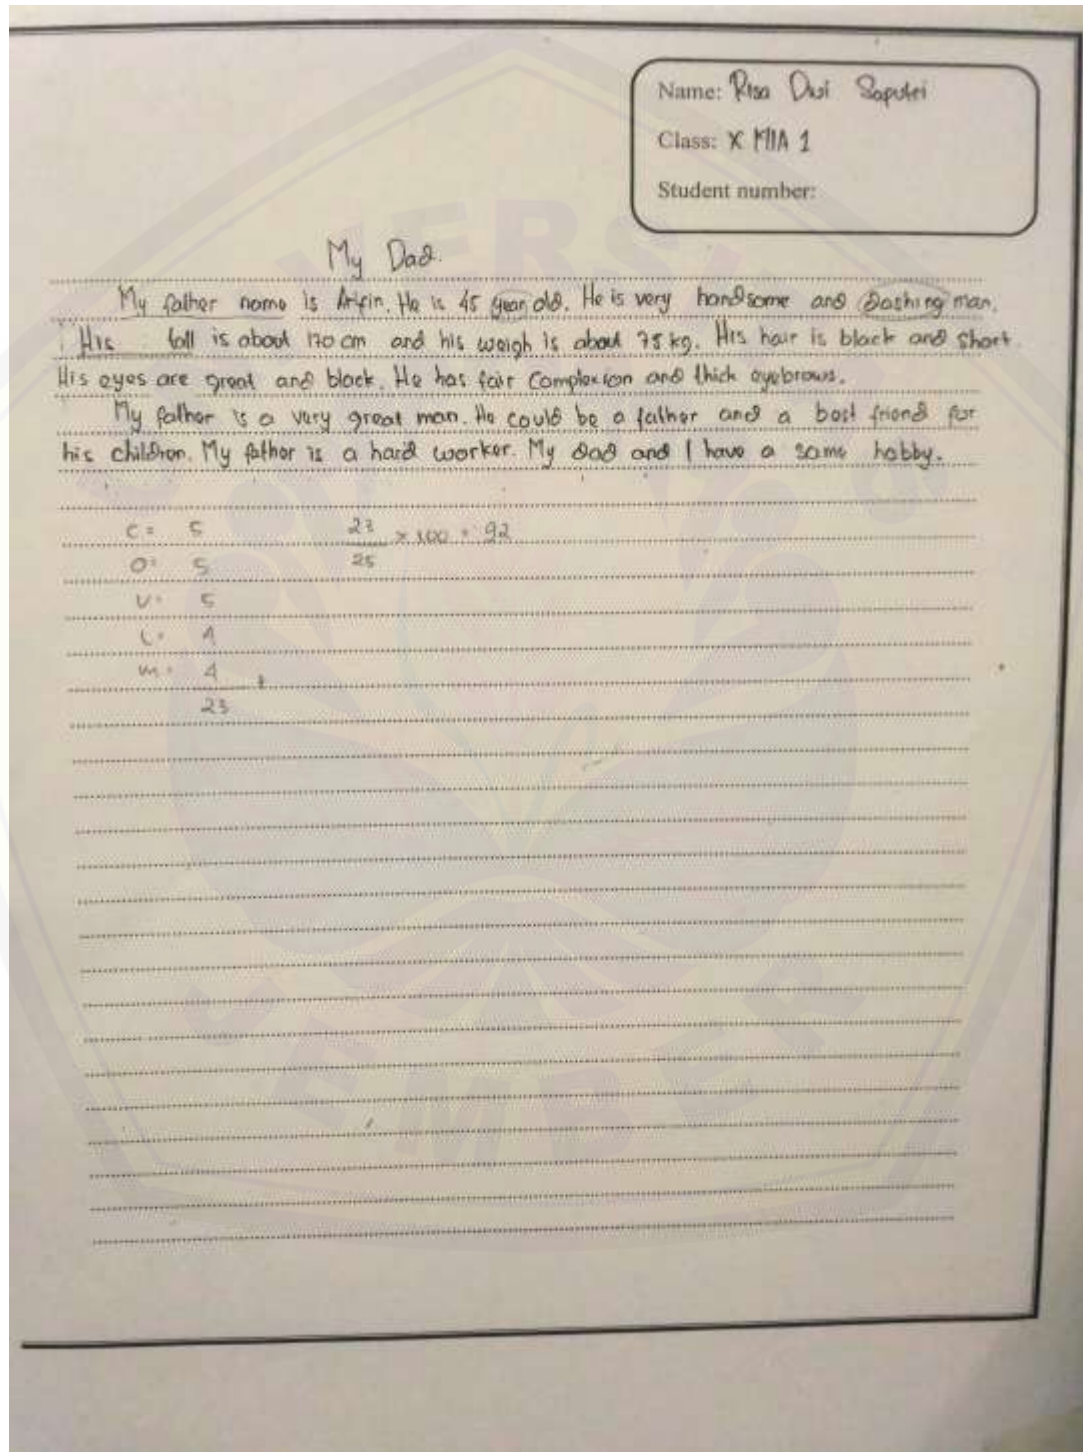 Name: Risa Dwi Saputri
Class: X MIA 1
Student number:
My Dad.
My father name is Arifin. He is 45 year old. He is very handsome and dashing man.
His tall is about 170 cm and his weigh is about 75 kg. His hair is black and short.
His eyes are great and black. He has fair complexion and thick eyebrows.
My father is a very great man. He could be a father and a best friend for
his children. My father is a hard worker. My dad and I have a same hobby.
C = 5
O = 5
V = 5
L = 4
M = 4 +
23
23
25 × 100 = 92
UNIVERSITAS
JEMBER